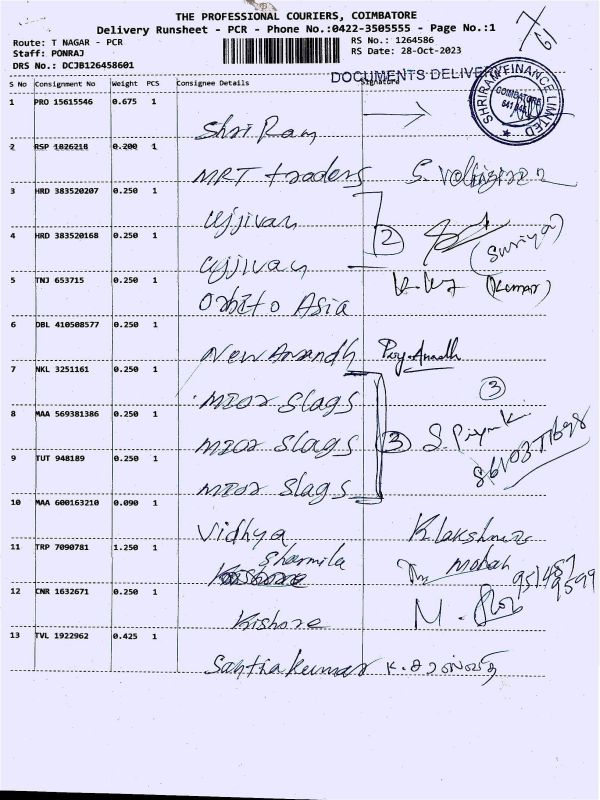 THE PROFESSIONAL COURIERS, COIMBATORE
Delivery Runsheet - PCR - Phone No.:0422-3505555 - Page No.:1
Route: T NAGAR - PCR
Staff: PONRAJ
DRS No.: DCJB126458601
RS No.: 1264586
RS Date: 28-Oct-2023
DOCUMENTS DELIVERY
SHRIRAM FINANCE LIMITED
COIMBATORE
S No Consignment No Weight PCS Consignee Details Signature
1 PRO 15615546 0.675 1
Shri Ram
2 RSP 1826218 0.200 1
MRT traders
3 HRD 383520207 0.250 1
Ujjivan
2
(Suriya)
4 HRD 383520168 0.250 1
Ujjivan
(Kumar)
5 TNJ 653715 0.250 1
Orbito Asia
6 DBL 410508577 0.250 1
New Anandh
7 NKL 3251161 0.250 1
Mior Slags
3
8 MAA 569381386 0.250 1
Mior Slags
3
9 TUT 948189 0.250 1
Mior Slags
10 MAA 600163210 0.090 1
Vidhya K. Lakshmi
11 TRP 7090781 1.250 1
Sharmila
Mobah
951487
9599
12 CNR 1632671 0.250 1
Kishore
13 TVL 1922962 0.425 1
Santhakumar